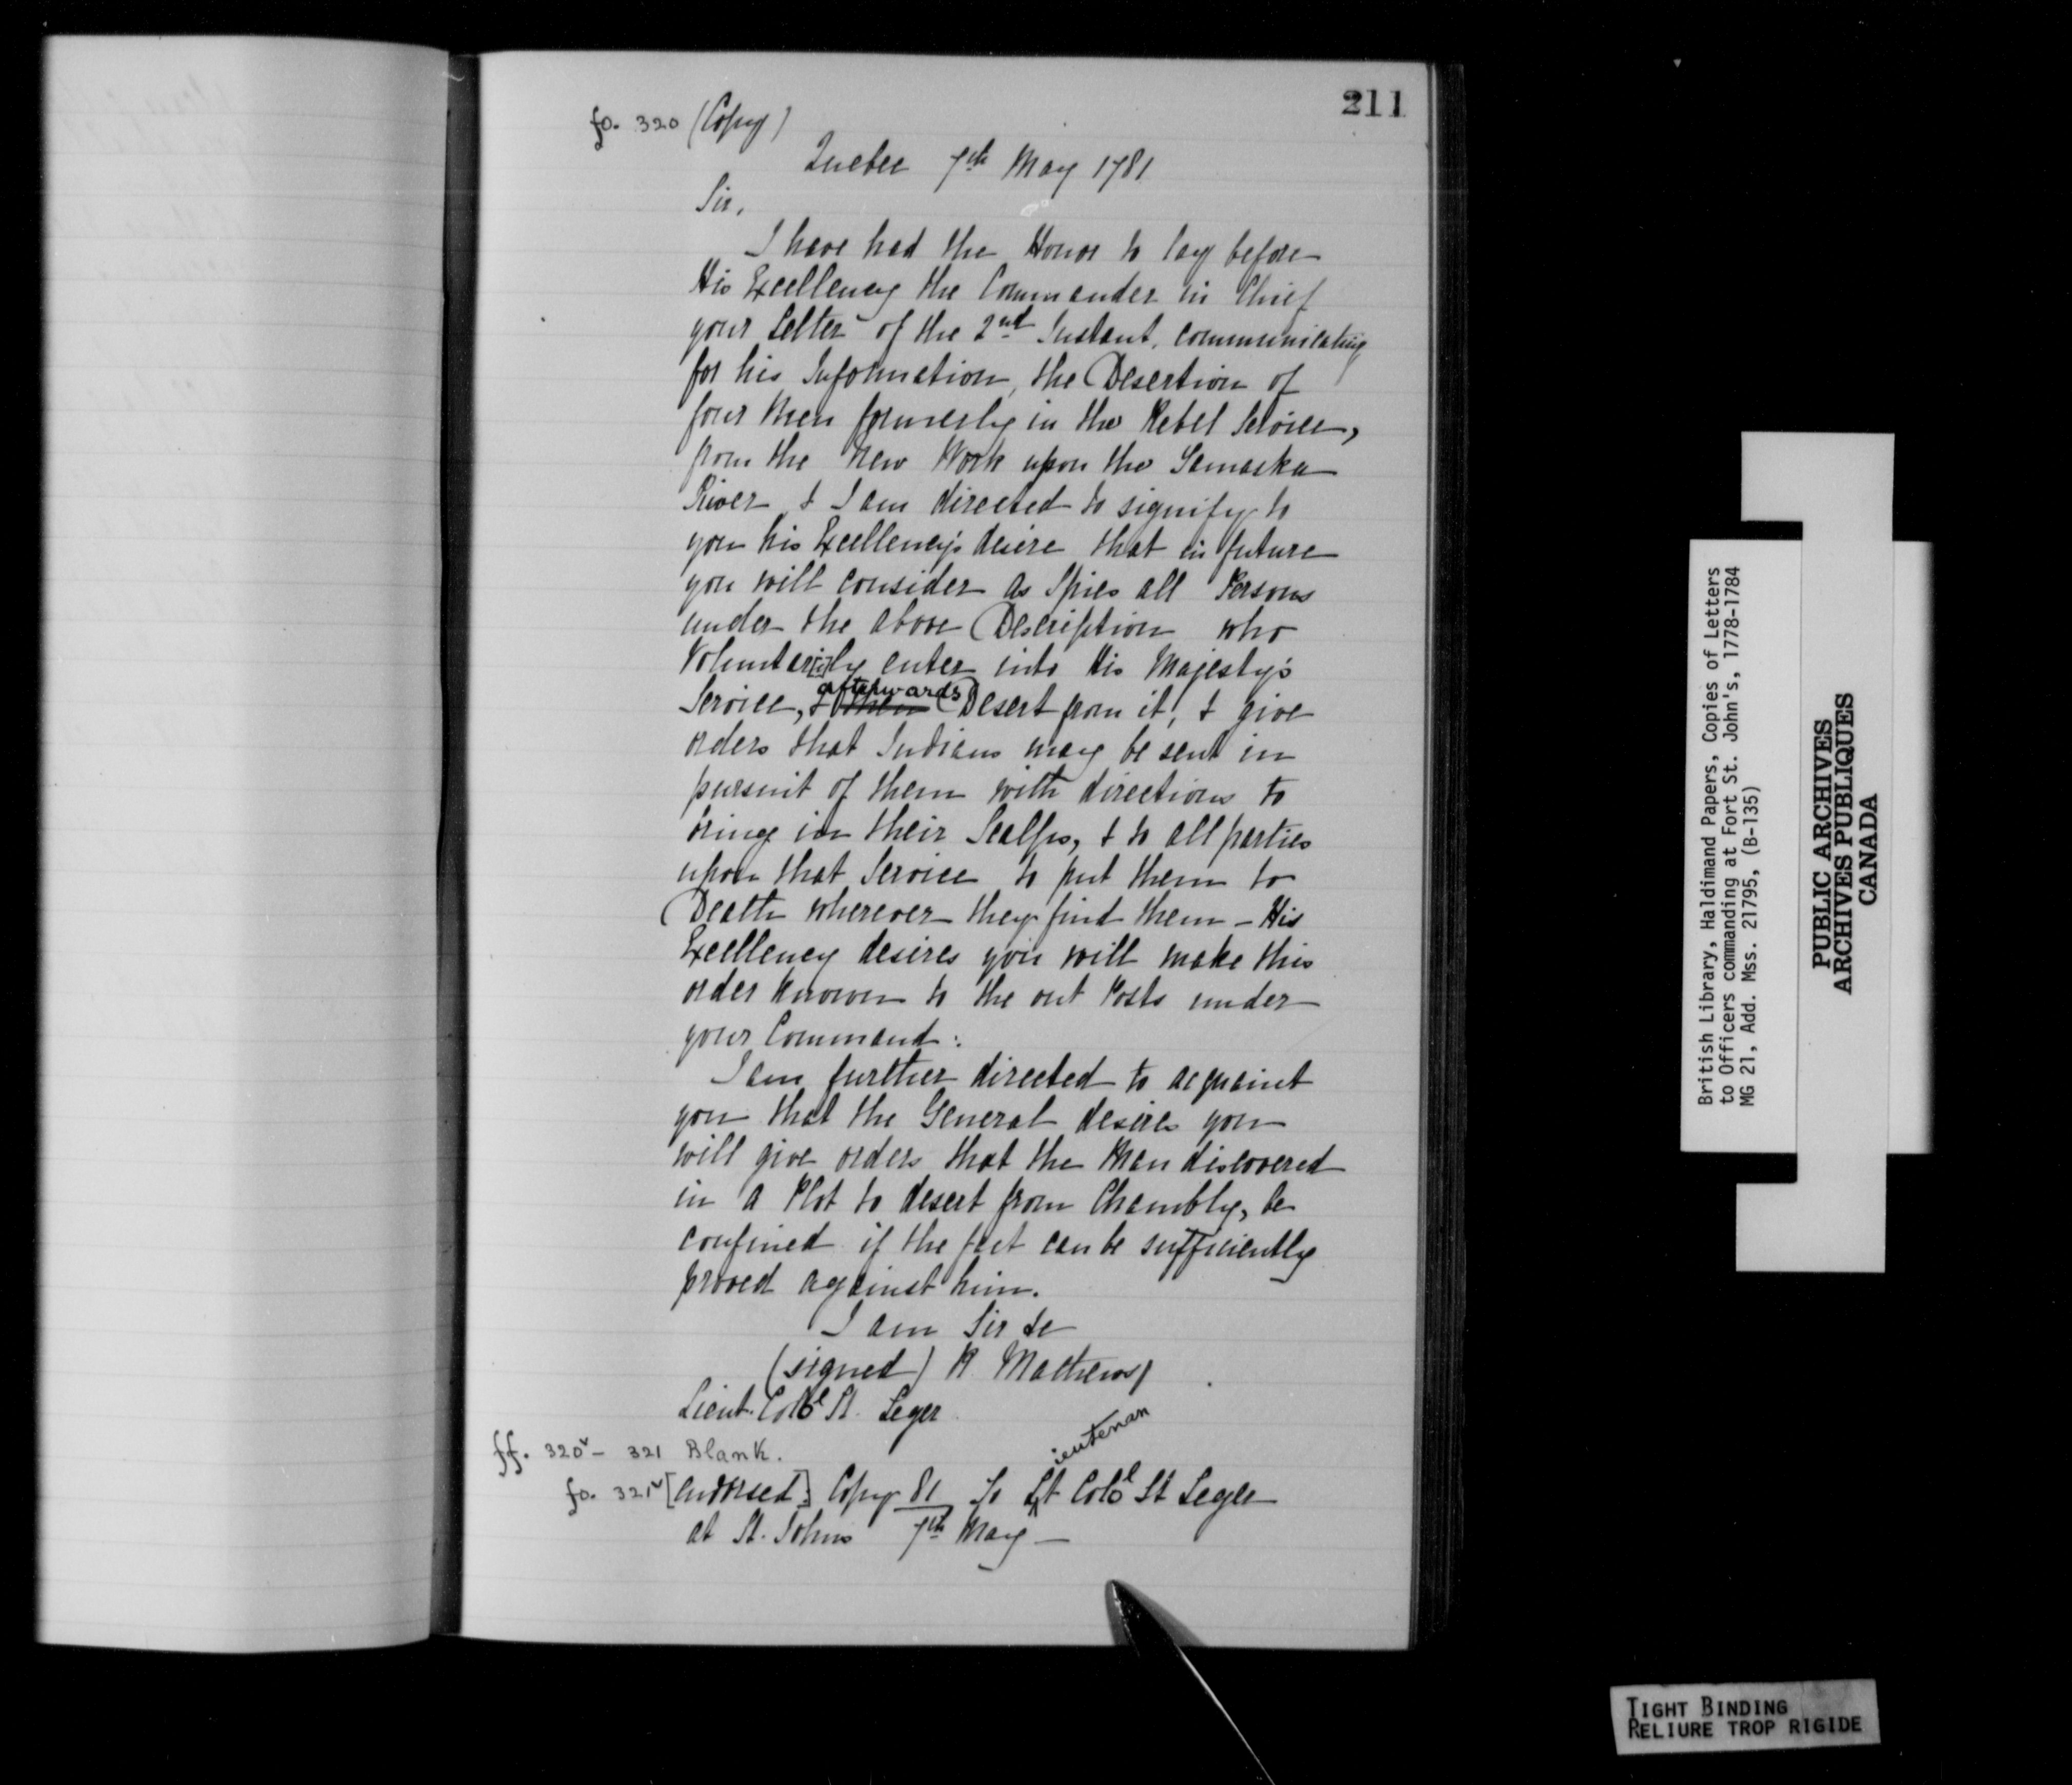 211
fo. 320 (Copy)
Quebec 7th May 1781
Sir,
I have had the Honor to lay before
His Excellency the Commander in Chief
your Letter of the 2nd Instant, communicating
for his Information, the Desertion of
four Men formerly in the Rebel Service,
from the New Work upon the Yamaska
River, & I am directed to signify to
you his Excellency's desire that in future
you will consider as Spies all Persons
under the above Description who
Voluntar[i]ly enter into His Majesty's
afterwards
Service, & then Desert from it, & give
orders that Indians may be sent in
pursuit of them with directions to
bring in their Scalps, & to all parties
upon that Service to put them to
Death wherever they find them - His
Excellency desires you will make this
order known to the out Posts under
your Command.
I am further directed to acquaint
you that the General desires you
will give orders that the Man discovered
in a Plot to desert from Chambly, be
confined if the fact can be sufficiently
proved against him.
I am Sir &c
(signed) R Mathews
Lieut. Coll St. Leger
ff. 320v - 321 Blank.
ieutenan
fo. 321v [endorsed:] Copy 81 To Lt Coll St Leger
at St. Johns 7th May —
British Library, Haldimand Papers, Copies of Letters
to Officers commanding at Fort St. John's, 1778-1784
MG 21, Add. Mss. 21795, (B-135)
PUBLIC ARCHIVES
ARCHIVES PUBLIQUES
CANADA
TIGHT BINDING
RELIURE TROP RIGIDE